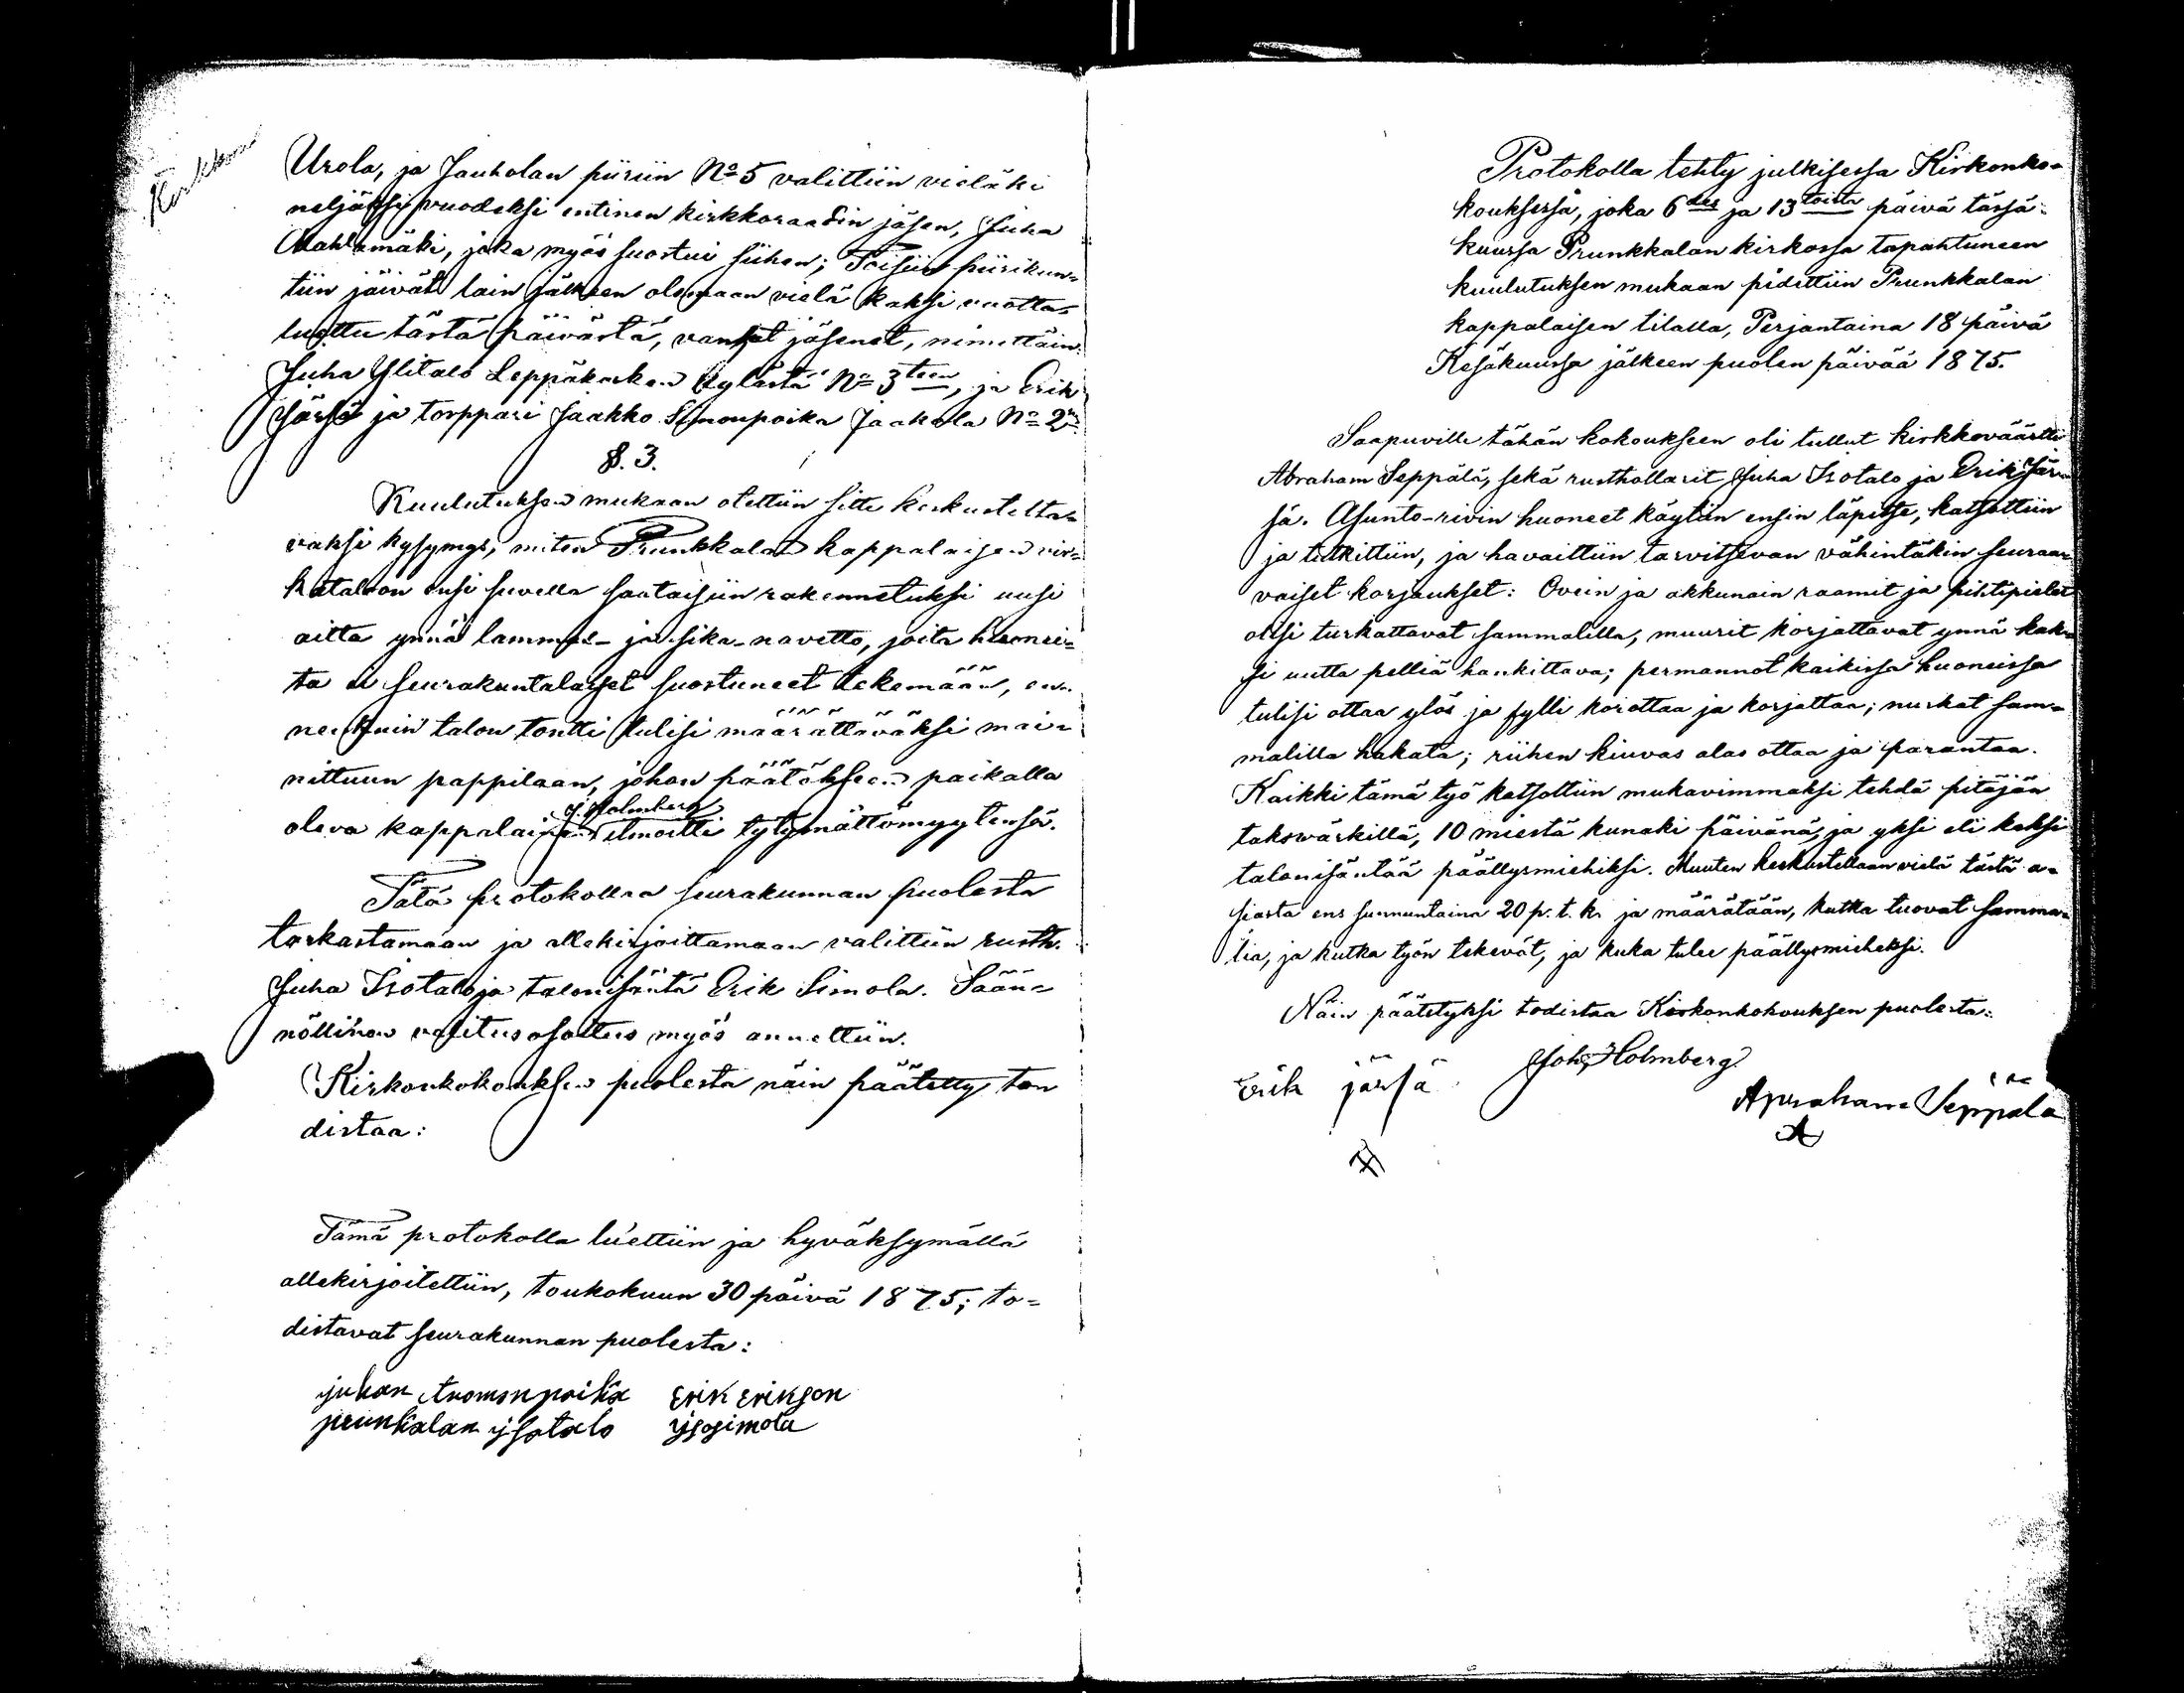 Kirkkoo
Urola, ja Jauholan piiriin No 5 valittiin vieläki
neljäksi vuodeksi entinen kirkkoraadin jäsen, Juha
Mahlamäki, joka myös suostui siihen; Toisiin piirikun=
tiin jäivät lain jälkeen olemaan vielä kaksi vuotta,
luettu tästä päivästä, vanhat jäsenet, nimittäin:
Juha Ylitalo Leppäkosken kylästä No 3teen, ja Erik
Järsä ja torppari Jaakko Simonpoika Jaakola No 2
§. 3.
Kuulutuksen mukaan otettiin sitte keskustelta=
vaksi kysymys, miten Prunkkalan kappalaisen vir=
kataloon ensi suvella saataisiin rakennetuksi uusi
aitta ynnä lammas- ja sika-navetto, joita huonei=
ta ei seurakuntalaiset suostuneet tekemään, en=
nenkuin talon tontti tulisi määrättäväksi mai=
nittuun pappilaan, johon päätökseen paikalla
J. Holmberg
oleva kappalainen ilmoitti tytymättömyytensä.
Tätä protokollaa seurakunnan puolesta
tarkastamaan ja allekirjoittamaan valittiin rusth.
Juha Isotalo ja talonisäntä Erik Simola. Sään=
nöllinen valitusosoitus myös annettiin.
Kirkonkokouksen puolesta näin päätetty ton
distaa:
Tämä protokolla luettiin ja hyväksymällä
allekirjoitettiin, toukokuun 30 päivä 1875; to=
distavat seurakunnan puolesta:
juhan tuomonpoika Erik Erikson
prunkalan ysotalo ysosimola
Protokolla tehty julkisessa Kirkonko=
kouksessa, joka 6des ja 13toista päivä tässä=
kuussa Prunkkalan kirkossa tapahtuneen
kuulutuksen mukaan pidettiin Prunkkalan
kappalaisen tilalla, Perjantaina 18 päivä
Kesäkuussa jälkeen puolen päivää 1875.
Saapuville tähän kokoukseen oli tullut kirkkoväärtti
Abraham Seppälä, sekä rusthollarit Juha Isotalo ja Erik Jär=
sä. Asunto-rivin huoneet käytiin ensin läpitse, katsottiin
ja tutkittiin, ja havaittiin tarvitsevan vähintäkin seuraa=
vaiset korjaukset: Ovein ja akkunain raamit ja pihtipielet
olisi turkattavat sammalilla, muurit korjattavat ynnä kak=
si uutta peltiä hankittava; permannot kaikissa huoneissa
tulisi ottaa ylös ja fylli korottaa ja korjattaa; nurkat sam=
malilla hakata; riihen kiuvas alas ottaa ja parantaa.
Kaikki tämä työ katsottiin mukavimmaksi tehdä pitäjän
takswärkillä, 10 miestä kunaki päivänä, ja yksi eli kaksi
talonisäntää päällysmiehiksi. Muuten keskustellaan vielä tästä a=
siasta ens sunnuntaina 20 p. t. k. ja määrätään, kutka tuovat samma=
lia, ja kutka työn tekevät, ja kuka tulee päällysmieheksi.
Näin päätetyksi todistaa Kirkonkokouksen puolesta:
Joh. Holmberg
Erik järsä
Apraham Seppälä
A